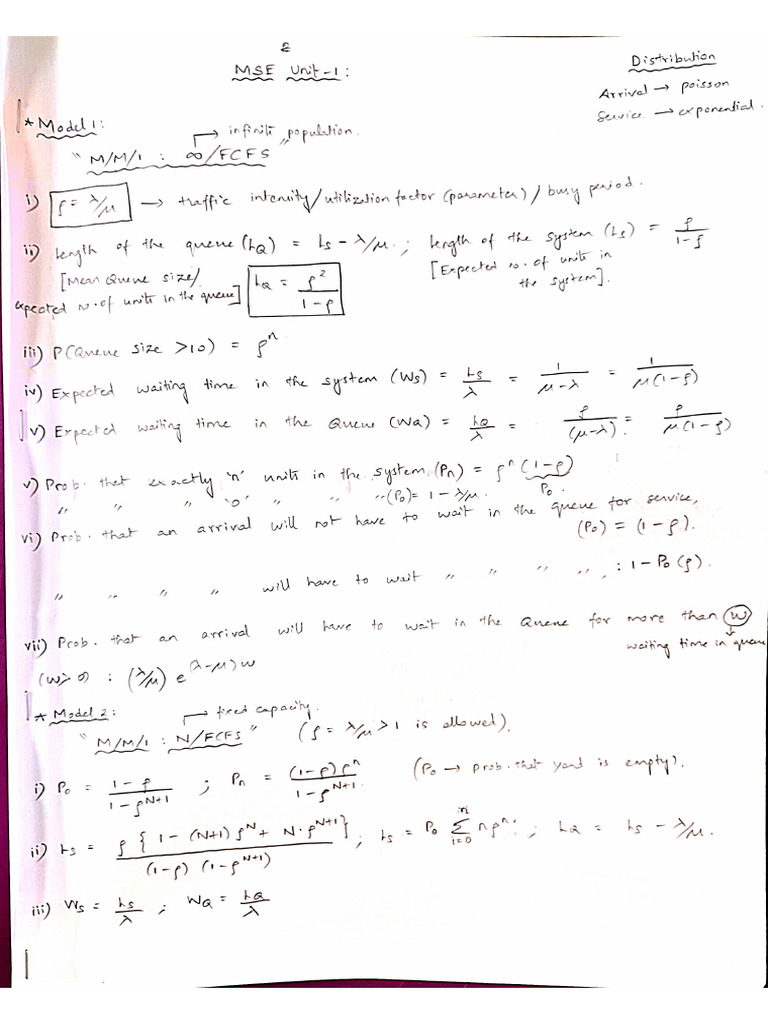 2
MSE Unit-1:
Distribution
Arrival → poisson
Service → exponential.
* Model 1:
→ infinite population.
"M/M/1 : ∞/FCFS"
i) ρ = λ/μ → traffic intensity/utilization factor (parameter) / busy period.
ii) Length of the queue (LQ) = Ls - λ/μ. ; Length of the system (Ls) = ρ/(1-ρ)
[Mean Queue size/ expected no. of units in the queue] LQ = ρ²/(1-ρ) [Expected no. of units in the system].
iii) P(Queue size >10) = ρⁿ
iv) Expected waiting time in the system (Ws) = Ls/λ = 1/(μ-λ) = 1/μ(1-ρ)
v) Expected waiting time in the Queue (WQ) = LQ/λ = ρ/(μ-λ). = ρ/μ(1-ρ)
v) Prob. that exactly 'n' units in the system (Pn) = ρⁿ (1-ρ)
P₀.
" " " '0' " " " (P₀) = 1 - λ/μ.
vi) Prob. that an arrival will not have to wait in the queue for service,
(P₀) = (1-ρ).
" " " " will have to wait " " " " " : 1-P₀ (ρ).
vii) Prob. that an arrival will have to wait in the Queue for more than w
waiting time in queue
(w>0) : (λ/μ) e^(λ-μ)w
* Model 2:
→ fixed capacity.
"M/M/1 : N/FCFS" (ρ = λ/μ >1 is allowed).
i) P₀ = (1-ρ)/(1-ρ^(N+1)) ; Pn = (1-ρ)ρⁿ/(1-ρ^(N+1)). (P₀ → prob. that yard is empty).
ii) Ls = ρ{1-(N+1)ρ^N + N·ρ^(N+1)}/((1-ρ)(1-ρ^(N+1))) ; Ls = P₀ Σ_{i=0}^{n} nρⁿ. ; LQ = Ls - λ/μ.
iii) Ws = Ls/λ ; WQ = LQ/λ